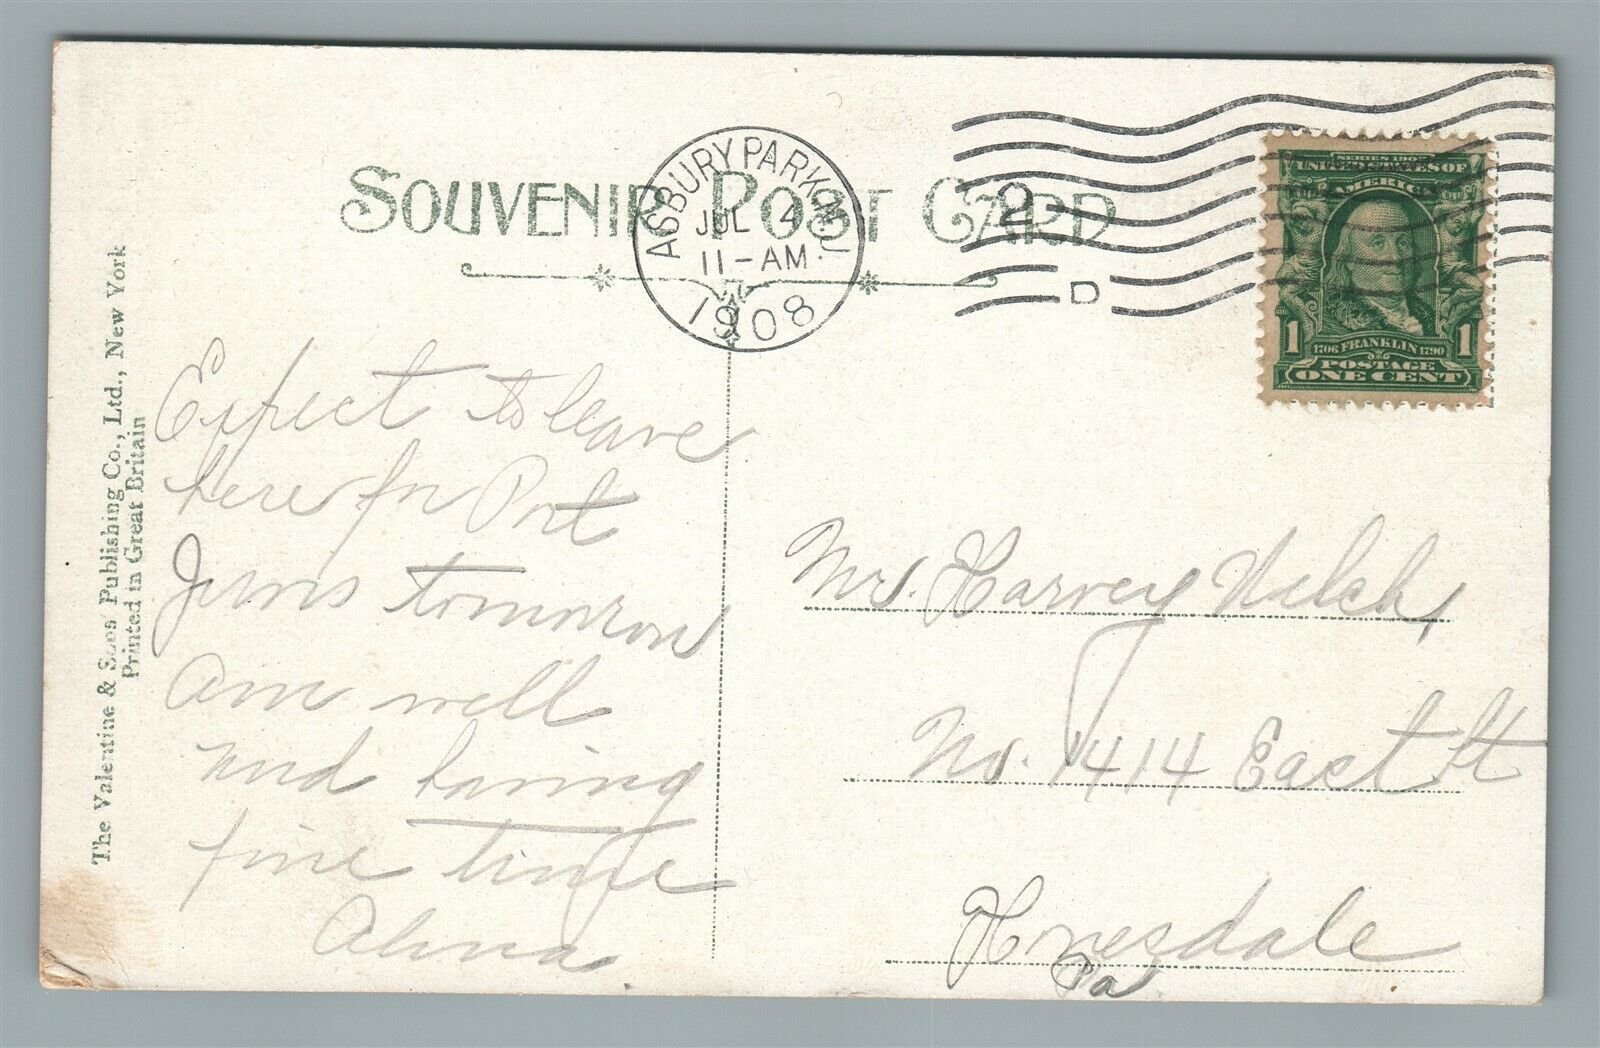 SOUVENIR POST CARD
ASBURY PARK, N.J.
JUL 4
11-AM
1908
2
D
SERIES 1902
UNITED STATES OF
AMERICA
1 1706 FRANKLIN 1790 1
POSTAGE
ONE CENT
The Valentine & Sons' Publishing Co., Ltd., New York
Printed in Great Britain
Expect to leave
here for Port
Jervis tomorrow
Am well
and having
fine time
Alma
Mr. Harvey Welch,
No. 1414 East St
Honesdale
Pa